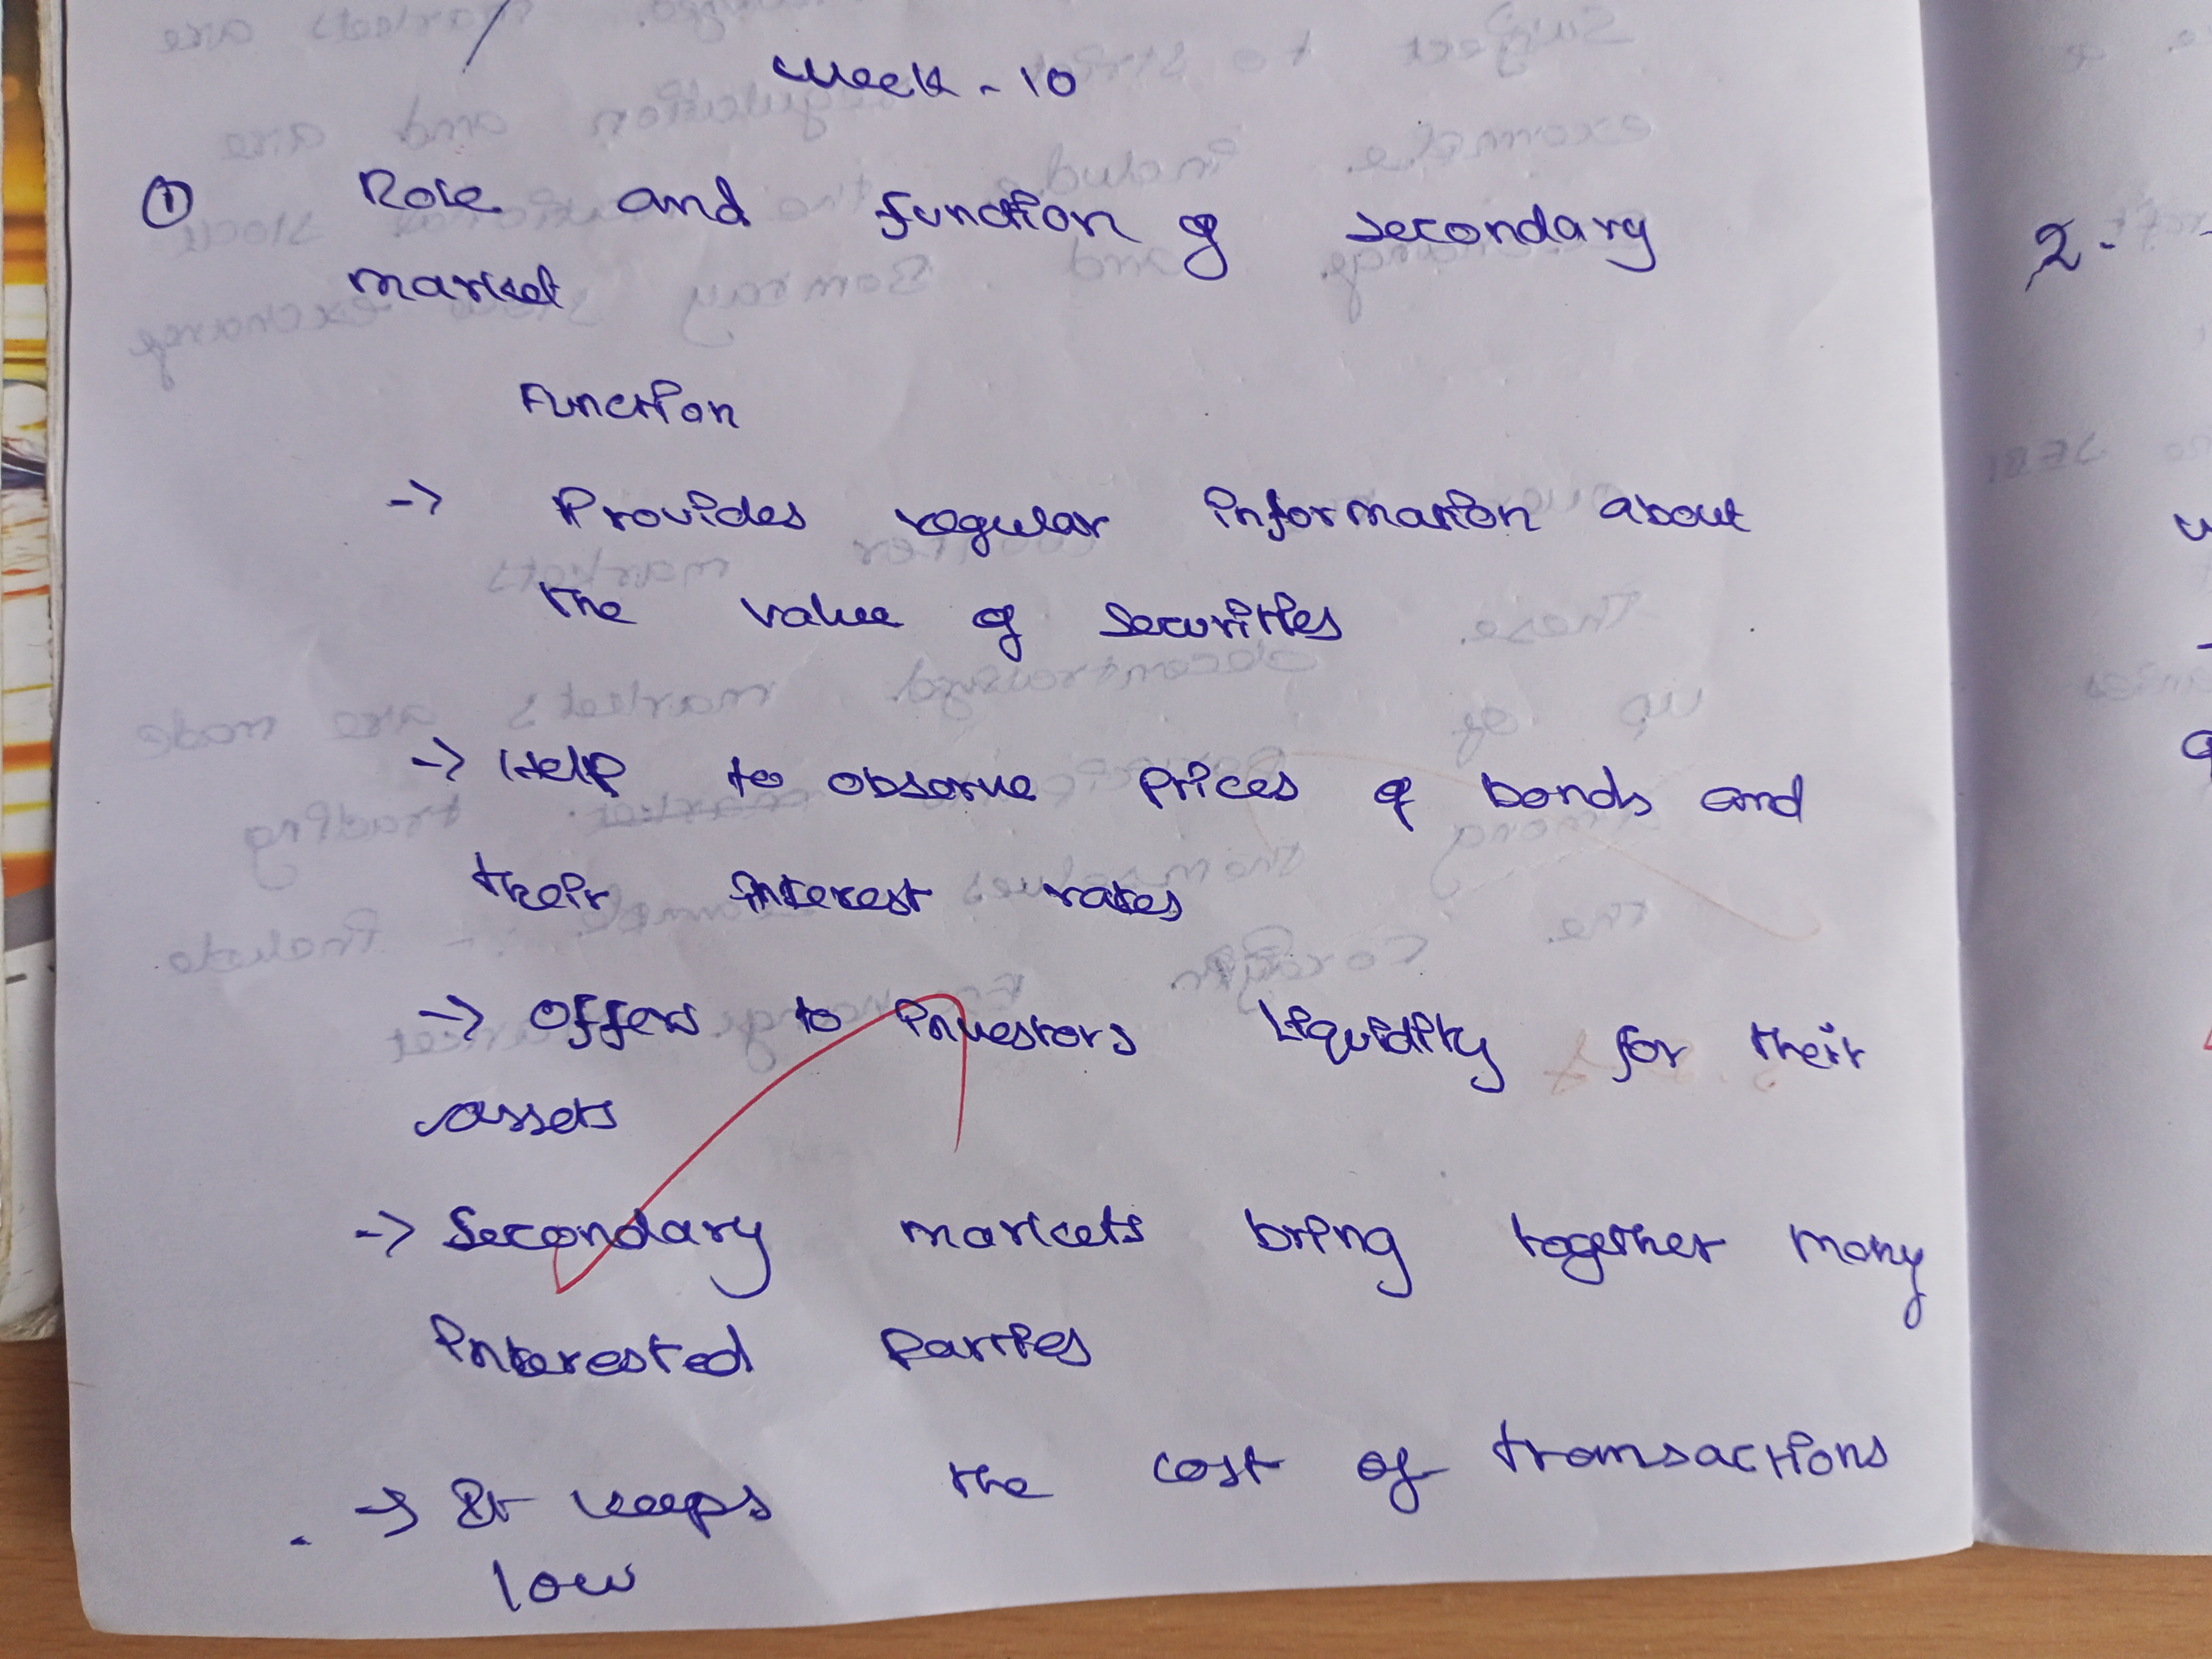 Week - 10
① Role and function of secondary
market
Function
-> Provides regular information about
the value of securities
-> Help to observe prices of bonds and
their interest rates
-> Offers to investors liquidity for their
assets
-> Secondary markets bring together many
interested parties
-> It keeps the cost of transactions
low
2.